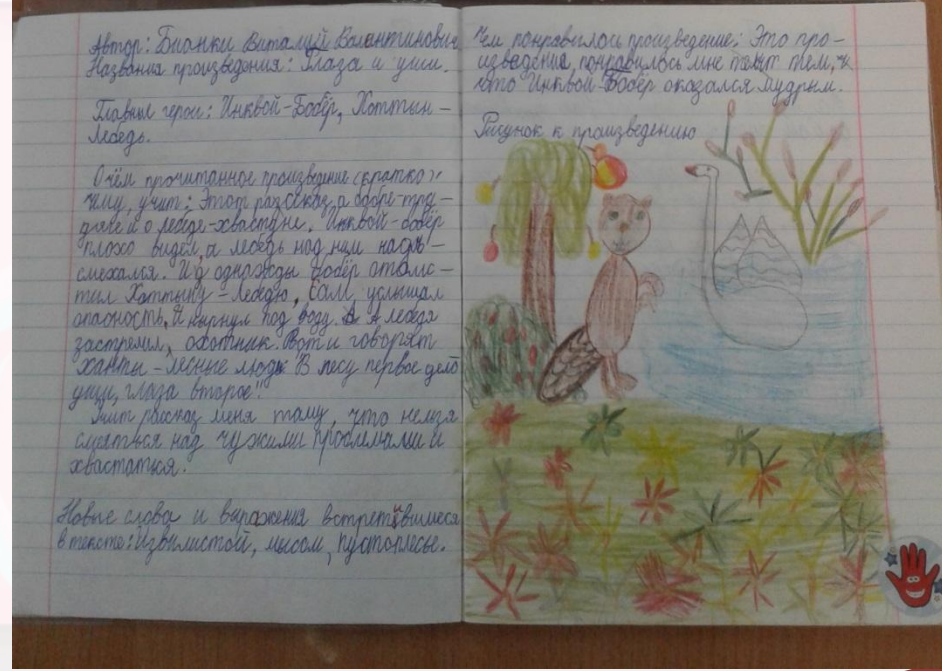 Автор: Бианки Виталий Валентинович
Названия произведения: Глаза и уши.
Главные герои: Инквой-Бобёр, Хоттын-
Лебедь.
О чём прочитанное произведение (кратко),
чему учит: Этот рассказ о бобре-тру-
даге и о лебеде-хвастуне. Инквой-бобёр
плохо видел, а лебедь над ним нас-
смехался. И однажды бобёр отомс-
тил Хаттыну-Лебедю, сам услышал
опасность, и нырнул под воду. А лебедя
застрелил, охотник. Вот и говорят
ханты-лесные люди "В лесу первое дело
уши, глаза второе!"
Учит рассказ меня тому, что нельзя
смеяться над чужими проблемами и
хвастатся.
Новые слова и выражения встретившиеся
в тексте: извилистой, мысом,
Чем понравилось произведение: Это про-
изведение понравилось мне тем,
что Инквой-Бобёр оказался мудрым.
Рисунок к произведению